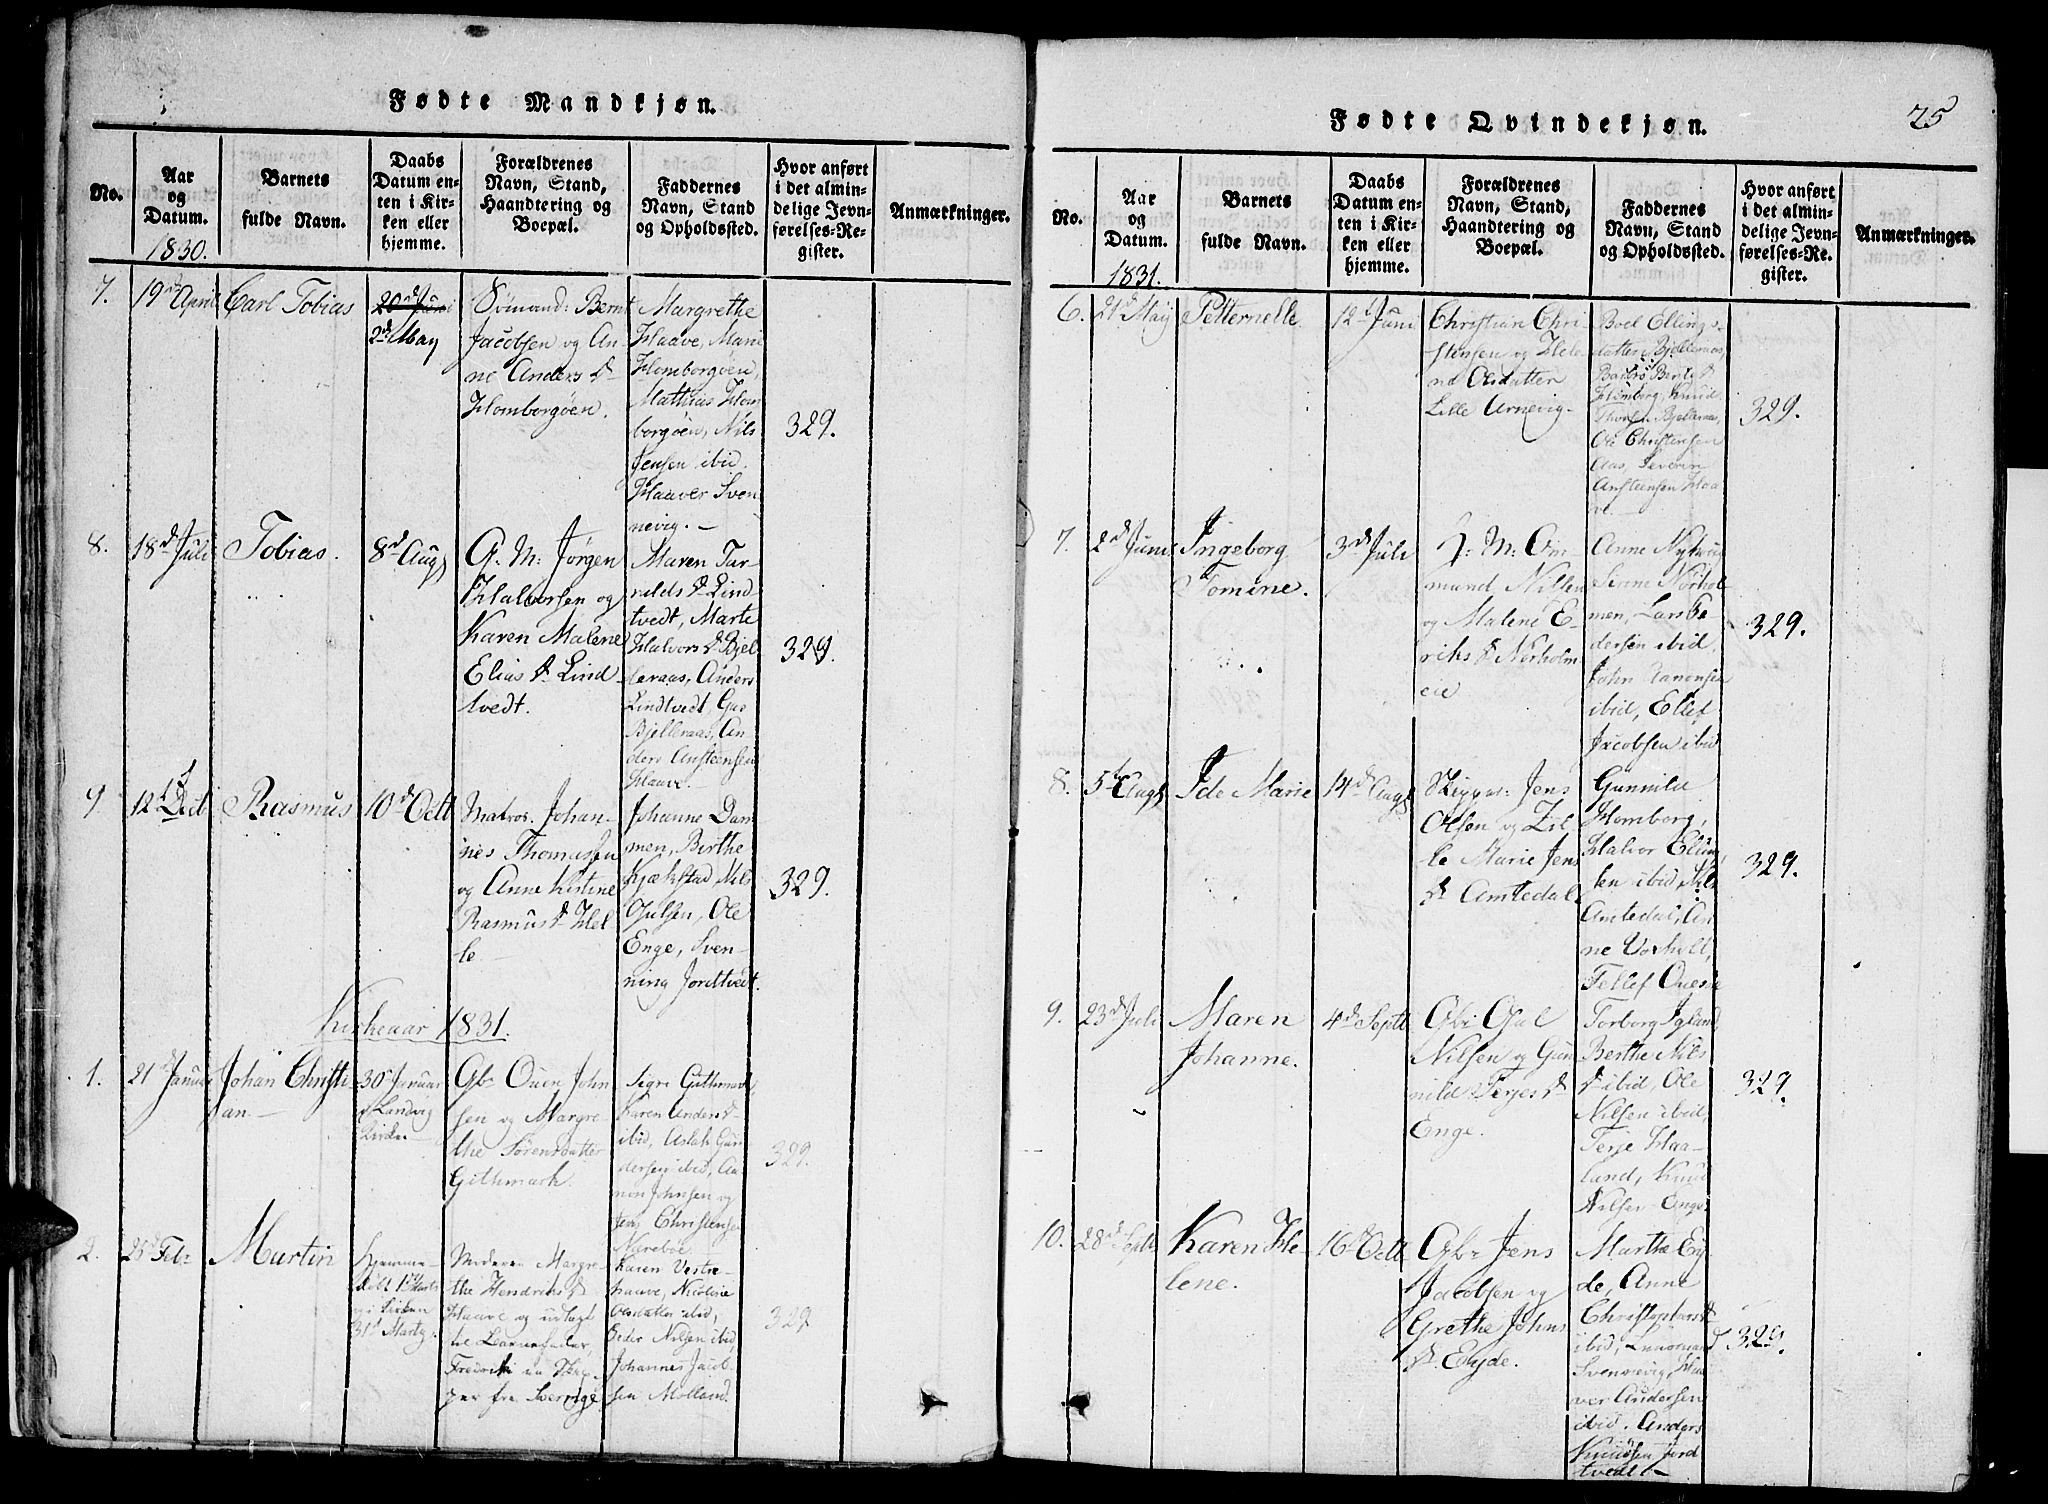 Fødte Mandkjøn.
No.
Aar
og
Datum.
1830.
Barnets
fulde Navn.
Daabs
Datum en-
ten i Kir-
ken eller
hjemme.
Forældrenes
Navn, Stand,
Haandtering og
Boepæl.
Faddernes
Navn, Stand
og Opholdssted.
Hvor anført
i det almin-
delige Jevn-
førelses-Re-
gister.
Anmærkninger.
7.
19d April
Carl Tobias
20d Juni
2d May
Sömand: Bernt
Jacobsen og An-
ne Anders D.
Homborgöen.
Margrethe
Haave, Marie
Homborgöen,
Mathias Hom
borgöen, Nils
Jensen ibid.
Haaver Sven
nevig. –
329.
8.
18d Juli
Tobias.
8d Aug
G. M: Jörgen
Halvorsen og
Karen Malene
Elias D. Lind
tvedt.
Maren Tar-
alds D. Lind
tvedt, Marte
Halvors D. Bjel
leraas, Anders
Lindtvedt,
Bjelleraas, An
ders Ansteensen
Haave. –
329.
9.
12d
Rasmus
10d Octt
Matros. Johan-
nes Thomassen
og Anne Kistine
Rasmus D. Hel
le
Johanne Dam
men, Birthe
Kjækstad, Nils
Gulsen, Ole
Enge, Sven-
ning Jordtvedt.
329.
Kirkeaar 1831.
1.
21d Januar
Johan Christi
an. –
30d Januar
i Landvig
Kirke. –
Gbr Ouen John
sen og Margre
the Sörensdatter
Githmark.
Sigri Githmark,
Karen Anders D.
ibid, Aslak Gun
dersen ibid, Aa-
non Johnsen og
Jens Christensen
Narebœ.
329.
2.
25d Febr
Martin
Hjemme-
döbt 1ste Marts
og i Kirken
31d Martz.
Moderen Margre-
the Hendriks D.
Haave og udlagt
te Barnefader,
Fredrik en Skip-
per fra Sverrige
Karen Vestre-
haave, Nicoline
Olesdatter ibid,
Peder Nilsen ibid,
Johannes Jacob-
sen Molland.
329
Fødte Qvindekjøn.
75
No.
Aar
og
Datum.
1831.
Barnets
fulde Navn.
Daabs
Datum en-
ten i Kir-
ken eller
hjemme.
Forældrenes
Navn, Stand,
Haandtering og
Boepæl.
Faddernes
Navn, Stand
og Opholdssted.
Hvor anført
i det almin-
delige Jevn-
førelses-Re-
gister.
Anmærkninger.
6.
21d May
Petternelle.
12d Juni
Christian Chri-
stensen og Hele-
ne Olsdatter
Lille Arnevig.
Boel Ellings-
datter Bjelleraas,
Barbro Bents D.
Homborg, Knud
Thorsen Bjelleraas,
Ole Christensen
Aas, Severin
Ansteensen Haa
ve. –
329.
7.
2d Juni
Ingeborg
Tomine.
3d Juli
J: M: Om-
mund Nilsen
og Malene E-
riks D Nörholm
eie
Anne Nyhuus
Serine Nörhol
men, Lars Pe-
dersen ibid,
John Aanonsen
ibid, Ellef
Jacobsen ibid
329.
8.
5te Aug
Ide Marie
14d Aug
Skipper: Jens
Olsen og Zil-
le Marie Jens
D Amtedal
Gunnild
Homborg,
Halvor Ellin
sen ibid, Nils
Amtedal, An-
ne Voxholt,
Tellef Ouesen
329.
9.
23d Juli
Maren
Johanne.
4d Septt
Gbr Gul
Nilsen og Gun
nild Terjes D
Enge.
Torborg Igland,
Berthe Nils
D ibid, Ole
Nilsen ibid,
Terje Haa-
land, Knud
Nilsen Enge.
329.
10.
28d Septr
Karen He-
lene.
16d Octt
Gbr Jens
Jacobsen og
Grethe Johns
D. Eyde.
Marthe Ey-
de, Anne
Christophers D
ibid,
Svennevig, Haa
ver Andersen
ibid. Anders
Knudsen Jord
tvedt. –
329.